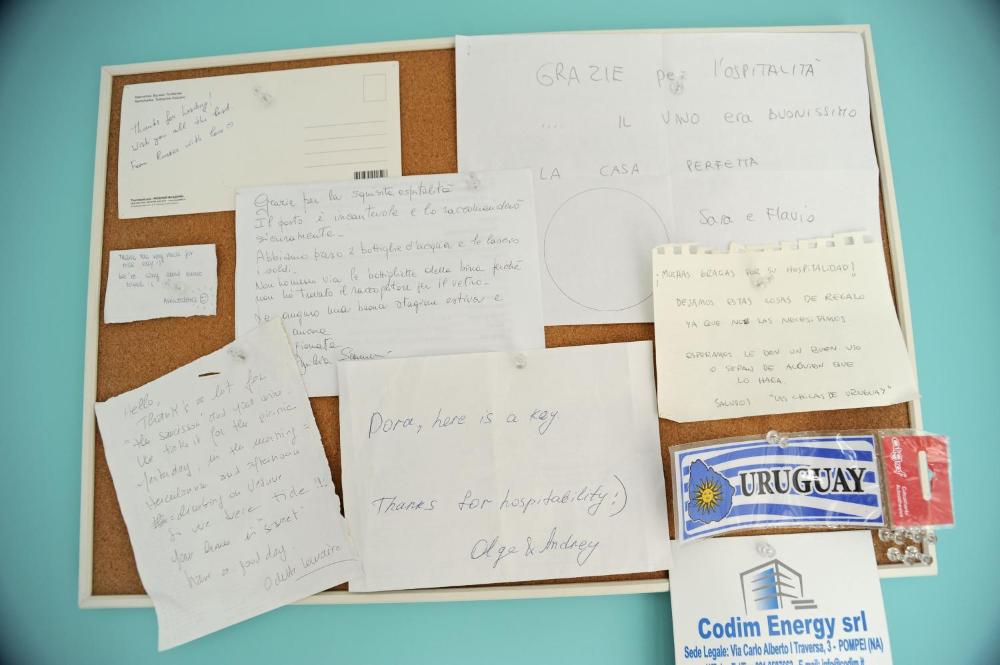 Thanks for hosting!
Wish you all the best.
From Russia with love
GRAZIE per l'OSPITALITÀ
.... IL VINO era BUONISSIMO
LA CASA PERFETTA
Sara e Flavio
Grazie per la squisita ospitalità
Il posto è incantevole e lo raccomanderò
sicuramente.
Abbiamo preso 2 bottiglie d'acqua e le lascio
i soldi.
Non ho messo via le bottigliette della birra perché
non ho trovato il raccoglitore per il vetro.
Le auguro una buona stagione estiva e
Thank you very much for
¡MUCHAS GRACIAS POR SU HOSPITALIDAD!
DEJAMOS ESTAS COSAS DE REGALO
YA QUE NOS LAS NECESITAMOS
ESPERAMOS LE DEN UN BUEN USO
O SEPAN DE ALGUIEN QUE
LO HARA.
SALUDOS "LAS CHICAS DE URUGUAY"
Hello,
Thank's a lot for
"the saucisson" and your wine.
We take it for the picnic
yesterday, in the morning =
Herculanum and afternoon
= climbing on Vesuve
So we were tide !!!
Your house is "sweet"
have a good day
Odette
Dora, here is a key
Thanks for hospitability!)
Olga & Andrey
URUGUAY
Codim Energy srl
Sede Legale: Via Carlo Alberto I Traversa, 3 - POMPEI (NA)